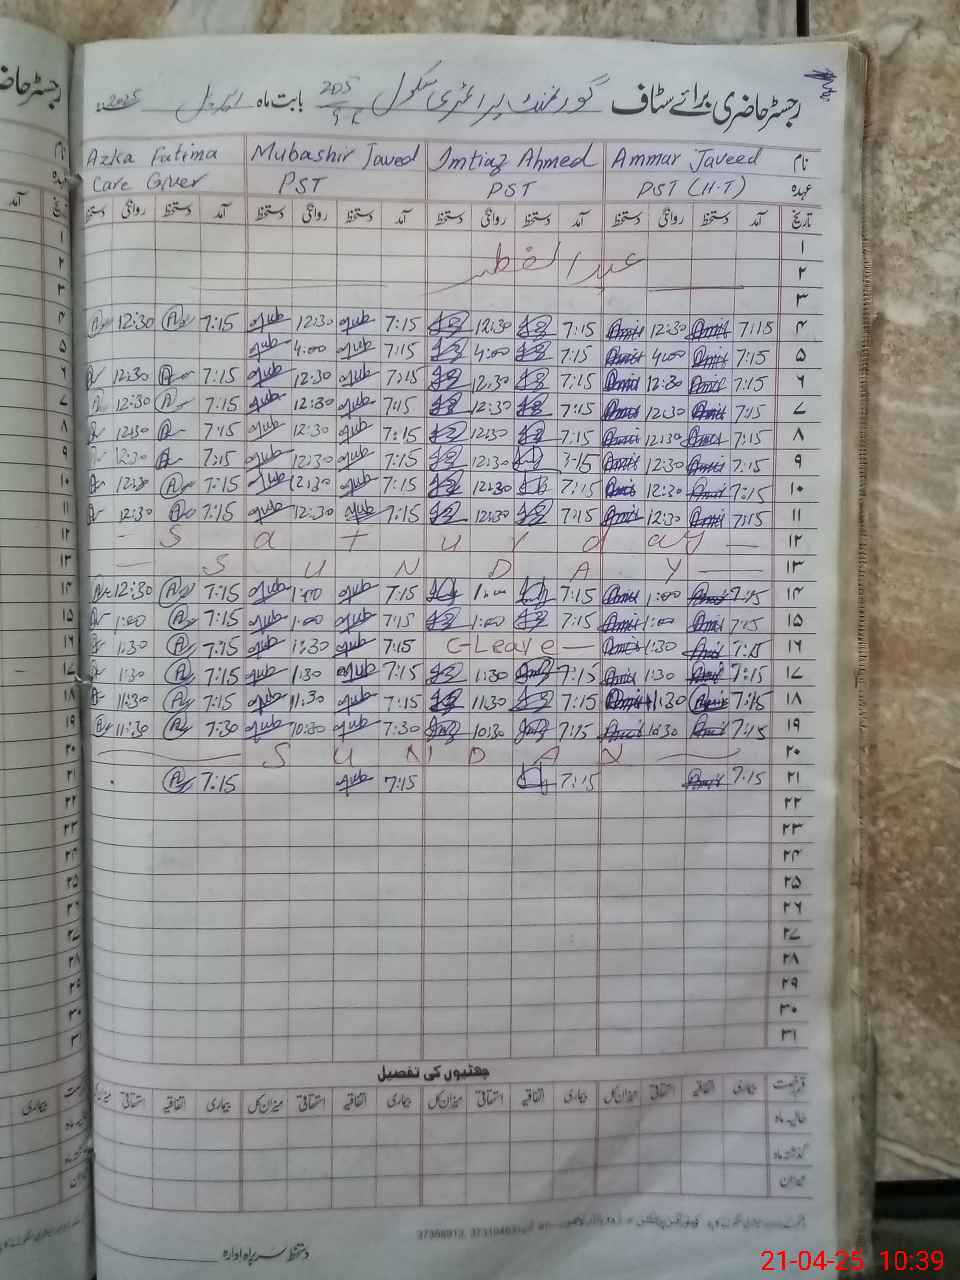 رجسٹر حاضری برائے سٹاف گورنمنٹ پرائمری سکول 205 بابت ماہ اپریل 2025ء
نام Ammar Javeed Imtiaz Ahmed Mubashir Javed Azka Fatima
عہدہ PST (H.T) PST PST Care Giver
تاریخ آمد دستخط روانگی دستخط آمد دستخط روانگی دستخط آمد دستخط روانگی دستخط آمد دستخط روانگی دستخط
۱ عید الفطر
۲
۳
۴ 7:15 12:30 7:15 12:30 7:15 12:30 7:15 12:30
۵ 7:15 4:00 7:15 4:00 7:15 4:00
۶ 7:15 12:30 7:15 12:30 7:15 12:30 7:15 12:30
۷ 7:15 12:30 7:15 12:30 7:15 12:30 7:15 12:30
۸ 7:15 12:30 7:15 12:30 7:15 12:30 7:15 12:30
۹ 7:15 12:30 7:15 12:30 7:15 12:30 7:15 12:30
۱۰ 7:15 12:30 7:15 12:30 7:15 12:30 7:15 12:30
۱۱ 7:15 12:30 7:15 12:30 7:15 12:30 7:15 12:30
۱۲ Saturday
۱۳ SUNDAY
۱۴ 7:15 1:00 7:15 1:00 7:15 1:00 7:15 12:30
۱۵ 7:15 1:00 7:15 1:00 7:15 1:00 7:15 1:00
۱۶ 7:15 1:30 C-Leave 7:15 1:30 7:15 1:30
۱۷ 7:15 1:30 7:15 1:30 7:15 1:30 7:15 1:30
۱۸ 7:15 11:30 7:15 11:30 7:15 11:30 7:15 11:30
۱۹ 7:15 10:30 7:15 10:30 7:30 10:30 7:30 11:30
۲۰ SUNDAY
۲۱ 7:15 7:15 7:15 7:15
۲۲
۲۳
۲۴
۲۵
۲۶
۲۷
۲۸
۲۹
۳۰
۳۱
چھٹیوں کی تفصیل
قسم رخصت بیماری اتفاقیہ استحقاقی میزان کل بیماری اتفاقیہ استحقاقی میزان کل بیماری اتفاقیہ استحقاقی میزان کل بیماری اتفاقیہ استحقاقی میزان کل
حالیہ ماہ
گذشتہ ماہ
میزان
دستخط سربراہ ادارہ
21-04-25 10:39